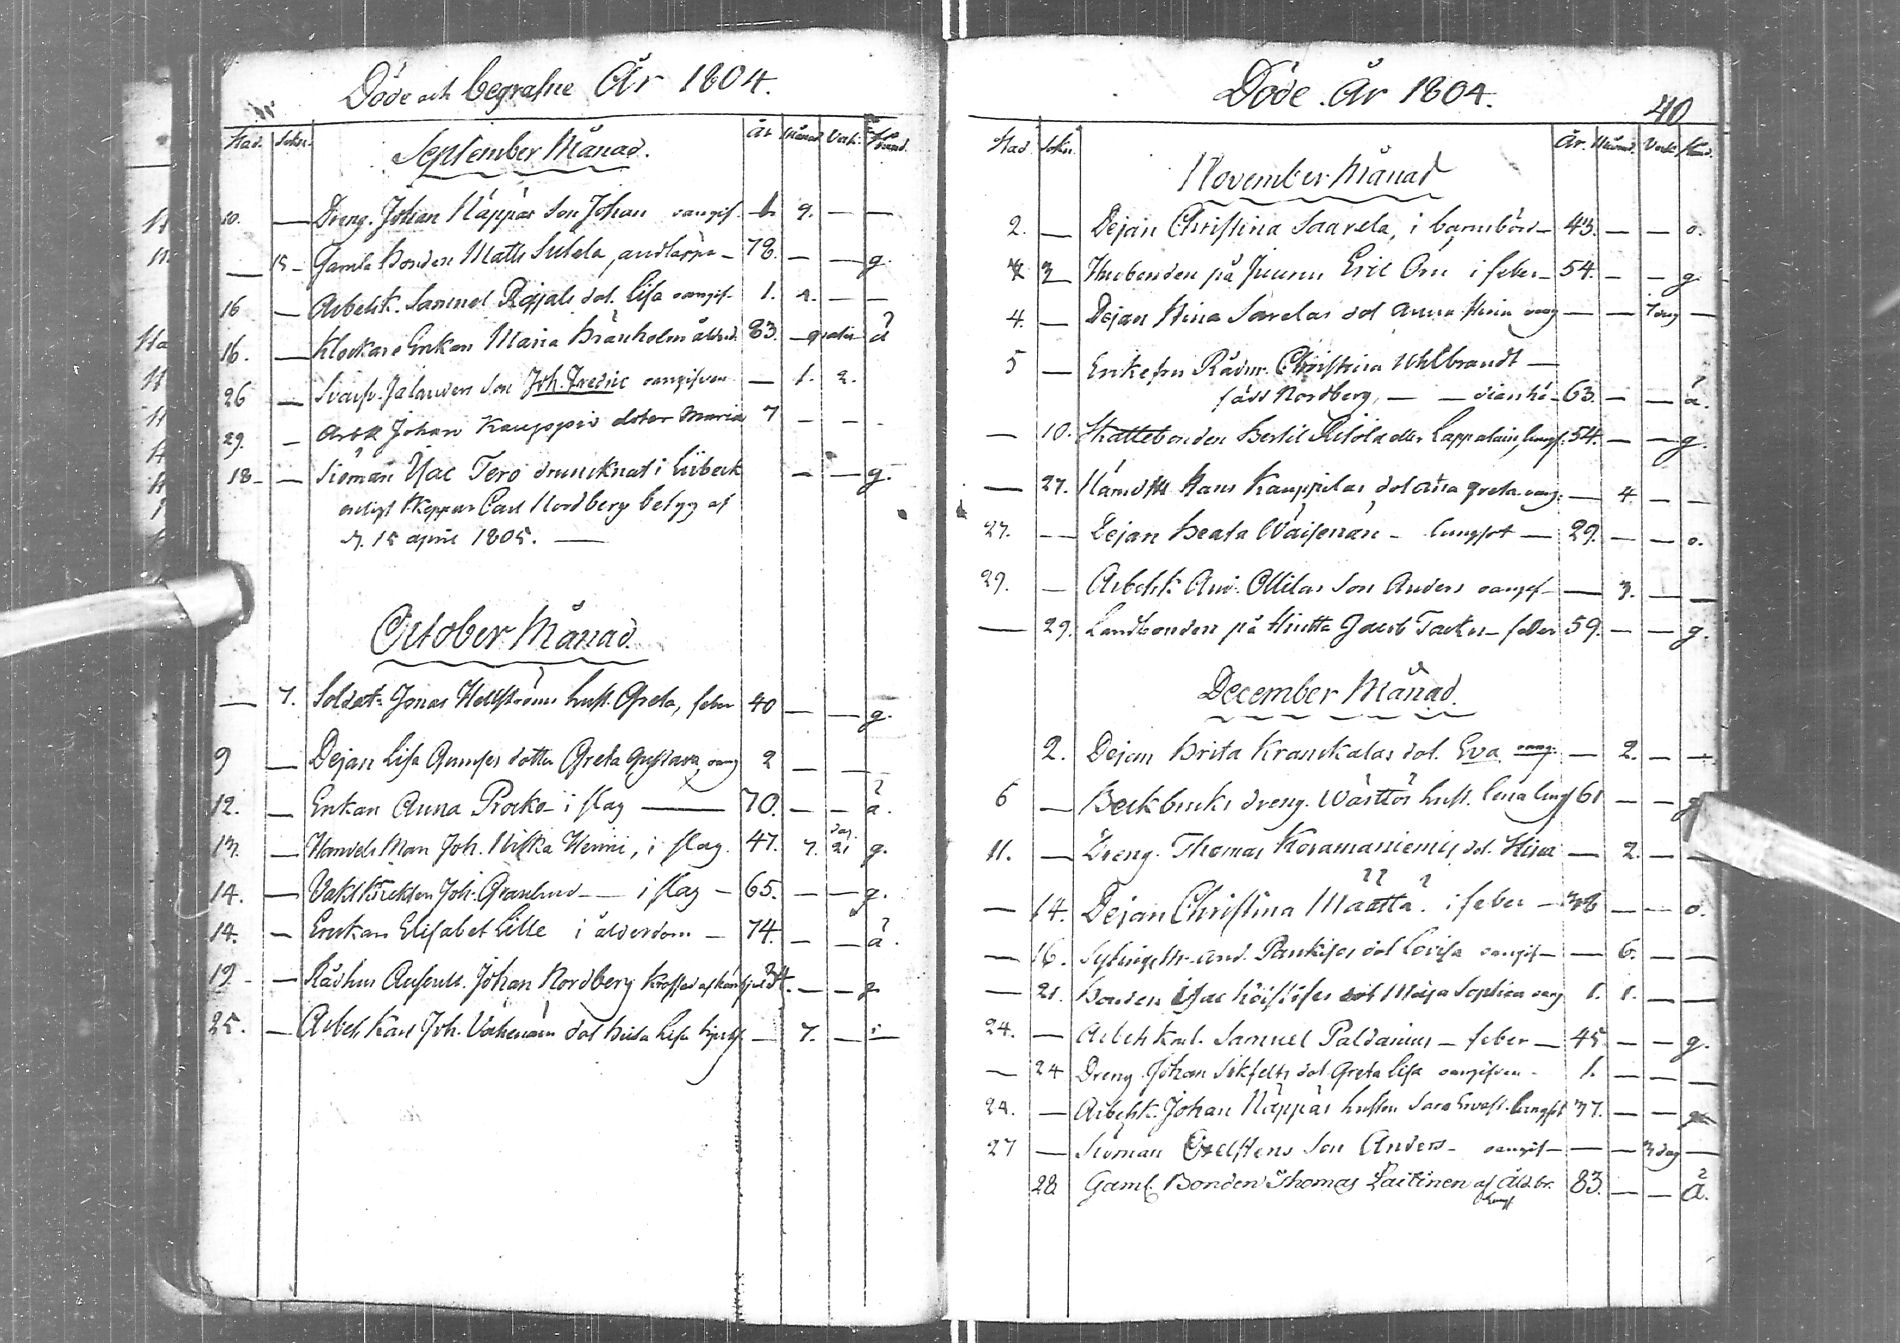 Döde och begrafne År 1804.
Stad. Sokn. År Månad Veck. Stånd.
September Månad.
10. — Dreng. Johan Näppäs Son Johan oangif. 1. 9. — —
— 15 – Gamla Bonden Matts Sulela, andtäppa – 78. — — g.
16 — Arbetsk. Samuel dot. Lisa oangif. 1. — —
16. — Klockare Enkan Maria Bränholm ålderd. 83. — å
26 — Svarfv. Jalanders Son Joh. Fredric oangifven — 1. 2.
29. — Arb.k Johan Kauppis dotter Maria 7 — — —
18 – — Sioman Isac Tero drunknat i Lübeck — — g.
enligt Skeppar Carl Nordberg betyg af
d. 15 april 1805. —
October Månad.
— 7. Soldat. Jonas Hellströms hust. Greta, feber 40 — — g.
9 — Dejan Lisa dotter Greta Gustava, oang 2 — —
12. — Enkan Anna Procko – i slag — 70. — — å.
13. — Handels Man Joh. Niska Henric, i slag. 47. 7. dag. 21 g.
14. — Joh. Granlund — i slag – 65. — — g.
14. — Enckan Elisabet Lille i ålderdom – 74. — — å.
19 – — Rådhus Auscult. Johan Nordberg 34. — — g
25. — Arbets Karl Joh. dot Lisa — 7. — —
Döde År 1804.
40
Stad. Sokn. År. Månad. Veck. Stånd.
November Månad
2. — Dejan Christina Saarela, i barnsbörd – 43. — — o.
3 på Juurus Eric Oru i feber – 54. — — g
4. — Dejan Stina Sarelas dot Anna Stina oang — — 7 dag —
5 — Enkefru Rådm. Christina Uhlbrandt —
född Nordberg, — — 63. — — å.
— 10. Skattebonden Bertil eller Lappalain, lungs. 54. — — g.
— 27. Hans Kauppilas dot Greta oang. — 4. — —
27. — — Dejan Beata Väisenän – lungsot — 29. — — o.
29. — Arbetsk. And. Ollilas Son Anders oangif – — 3. — —
— 29. Landbonden på Hiutta Jacob – feber 59. — — g.
December Månad.
2. Dejan Brita Kranckalas dot. Eva oang. — 2. — —
6 — Beckbruks dreng. Wärttös hust. Lena lungs 61 — — g
11. — Dreng. Thomas Koramaniemis dot. Stina — 2. — —
— 14. Dejan Christina Määttä. i feber – 38 — — o.
— 16. And. Pankises dot Lovisa oangif – — 6. — —
— 21. Bonden Isac dot Maja Sophia oang 1. 1. — —
24. — Arbets Karl. Samuel Paldanius – feber – 45 — — g.
— 24 Dreng Johan Sikfelts dot Greta Lisa oangifven – 1. — — —
24. — Arbetsk. Johan Näppäs hustru Sara lungsot 37. — — g
27 — Sioman Son Anders – oangif – — — 3 dag —
28 Gaml. Bonden Thomas Laitinen af Åld.br. 83. — — å.